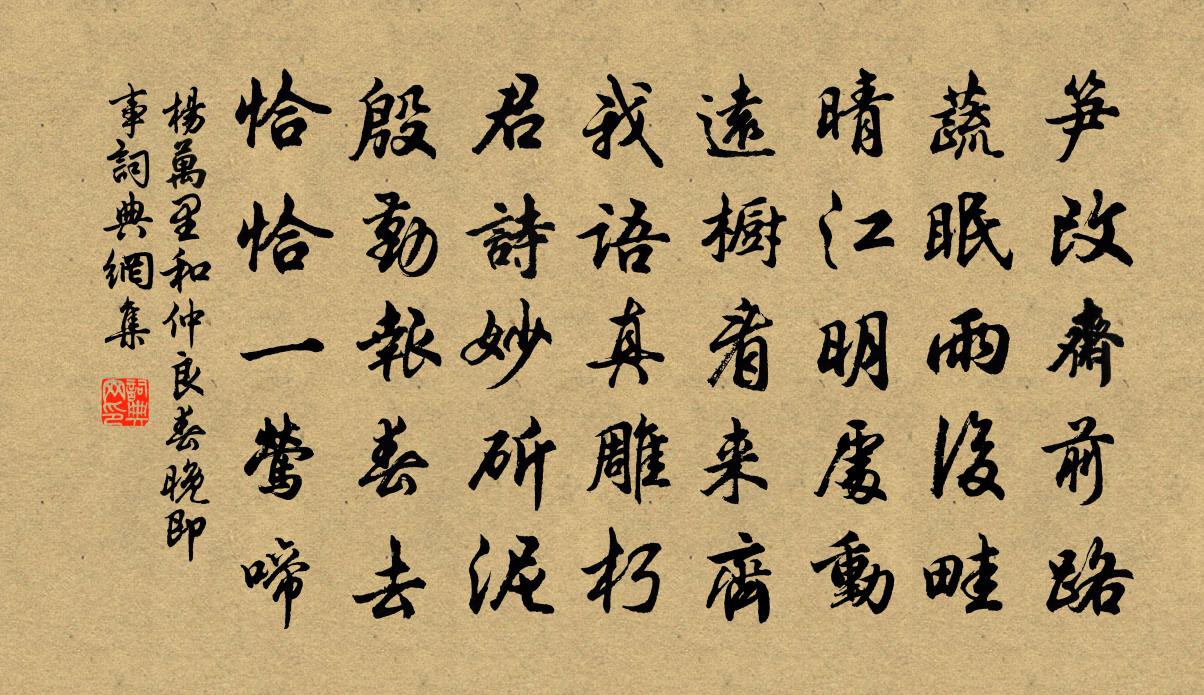 笋改齋前路
蔬眠雨後畦
晴江明處動
遠樹看来齊
我語真雕朽
君詩妙斫泥
殷勤報春去
恰恰一鶯啼
楊萬里和仲良春晚即
事詞典網集
詞典
网印